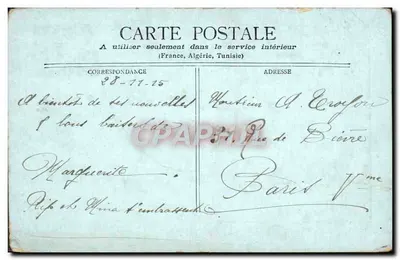 CARTE POSTALE
A utiliser seulement dans le service intérieur
(France, Algérie, Tunisie)
CORRESPONDANCE
ADRESSE
28-11-15
A bientôt de tes nouvelles
& bons baisers de
Marguerite
et Mina t'embrassent
Monsieur A. Troyon
Rue de Bièvre
Paris Vme
CPRPHOTO